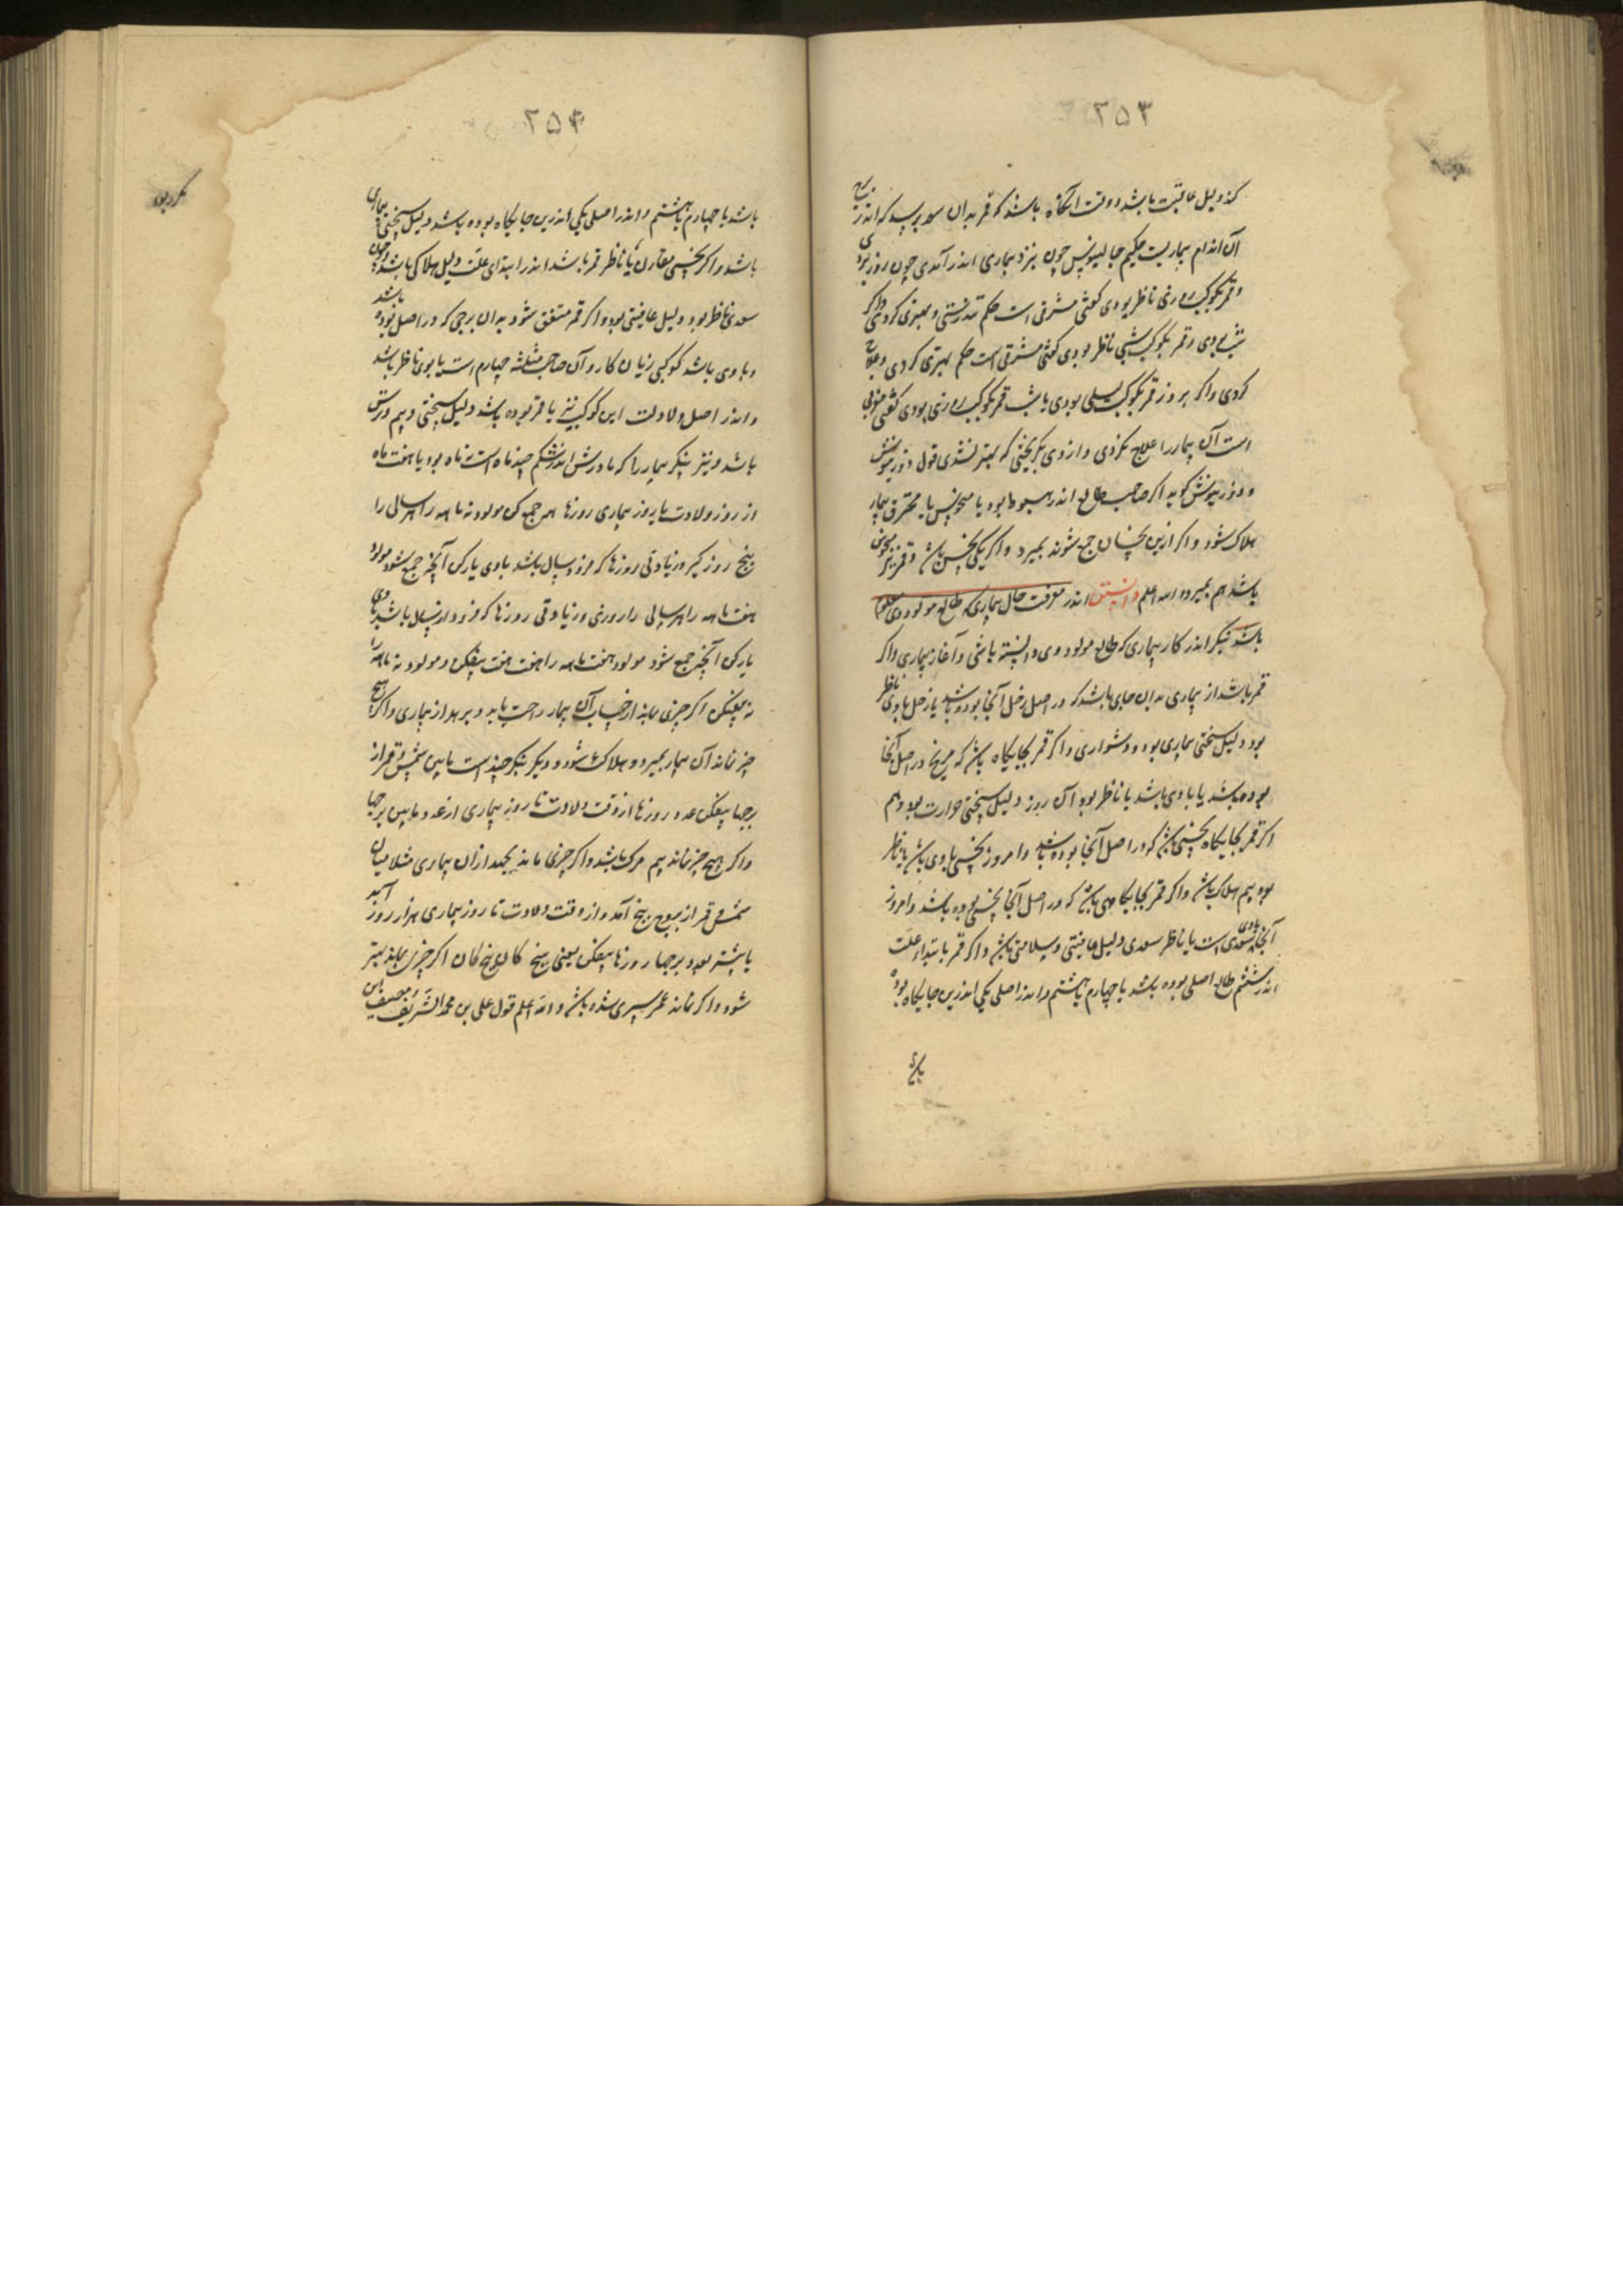 ۲۵۳
کند دلیل عاقبت باشد و وقت آنگاه باشد که قمر بدان سعد برسد که اندر برج
آن اندام بیماریست حکیم جالینوس چون بنزد بیماری اندر آمدی چون روز بودی
و قمر بکوکب روزی ناظر بودی گفتی مشرقی است حکم تندرستی و بهتری کردی و اگر
شب بودی و قمر بکوکب شبی ناظر بودی گفتی مشرقی است حکم بهتری کردی و علاج
کردی و اگر بروز قمر بکوکب لیلی بودی یا شب قمر بکوکب روزی بودی گفتی مغربی
است آن بیمار را علاج نکردی و از وی بگریختی که بهتر نشدی قول
گوید اگر صاحب طالع اندر هبوط بود یا منحوس یا محترق بیمار
هلاک شود و اگر ازین نحسان جمع شوند بمیرد و اگر یکی نحس باشد و قمر نیز منحوس
باشد هم بمیرد والله اعلم دانستن اندر معرفت حال بیماری که طالع مولود وی معلوم
باشد بنگر اندر کار بیماری که طالع مولود وی دانسته باشی و آغاز بیماری و اگر
قمر باشد از بیماری بدان جای باشد که در اصل زحل آنجا بوده باشد یا زحل با وی ناظر
بود دلیل سختی بیماری بود و دشواری و اگر قمر بجایگاه باشد که مریخ در اصل آنجا
بوده باشد یا با وی باشد یا ناظر بود آن روز دلیل سختی حرارت بود و هم
اگر قمر بجایگاه نحسی باشد که در اصل آنجا بوده باشد و امروز نحسی با وی باشد یا ناظر
بود بیم هلاک باشد و اگر قمر بجایگاهی باشد که در اصل آنجا نحسی بوده باشد و امروز
آنجا با وی سعدی است یا ناظر سعدی دلیل عافیتی و سلامتی باشد و اگر قمر بابتداء علت
اندر ششم طالع اصلی بوده باشد یا چهارم یا هشتم و اندر اصلی یکی اندرین جایگاه بوده
۲۵۴
باشد یا چهارم یا هشتم و اندر اصلی یکی اندرین جایگاه بوده باشد دلیل سختی بیماری
باشد و اگر نحسی مقارن یا ناظر قمر باشد اندر ابتدای علت دلیل هلاکی باشد و چون
سعدی ناظر بود دلیل عافیتی بود و اگر قمر متفق شود بدان برجی که در اصل بوده باشد
و با وی باشد کوکبی زیان کار و آن صاحب مثلثه چهارم است یا بوی ناظر باشد
و اندر اصل ولادت این کوکب نیز با قمر بوده باشد دلیل سختی و بیم مرگش
باشد و نیز بنگر بیمار را که مادرش اندر شکم چند ماه است نه ماه بود یا هفت ماه
از روز ولادت تا روز بیماری روزها همه جمع کن مولود نه ماهه را هر سالی را
پنج روز گیر و زیادتی روزها که فزون سال باشد با وی یار کن آنچه جمع شود مولود
هفت ماهه را هر سالی را روزی و زیادتی روزها که فزون از سال باشد با وی
یار کن آنچه جمع شود مولود هفت ماهه را هفت هفت بیفکن و مولود نه ماهه را
نه بیفکن اگر چیزی بماند از حساب آن بیمار راحت یابد و برهد از بیماری و اگر هیچ
چیز نماند آن بیمار بمیرد و هلاک شود و دیگر بنگر چند است مابین شمس و قمر از
برجها بیفکن عدد روزها از وقت ولادت تا روز بیماری از عدد مابین برجها
و اگر هیچ چیز نماند بیم مرگ باشد و اگر چیزی ماند بجهد از آن بیماری مثلا میان
شمس و قمر از بروج پنج آمد و از وقت ولادت تا روز بیماری هزار روز آمد
یا بیشتر بود برجها روزها بیفکن یعنی پنج کان پنج کان اگر چیزی بماند بهتر
شود و اگر نماند عمر سپری شده باشد والله اعلم قول علی بن محمد الشریف